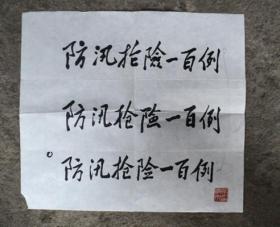 防汛抢險一百例
防汛抢險一百例
防汛抢险一百例